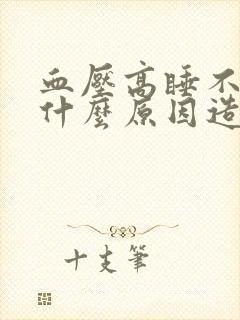 血壓高睡不
什麼原因造
十支筆